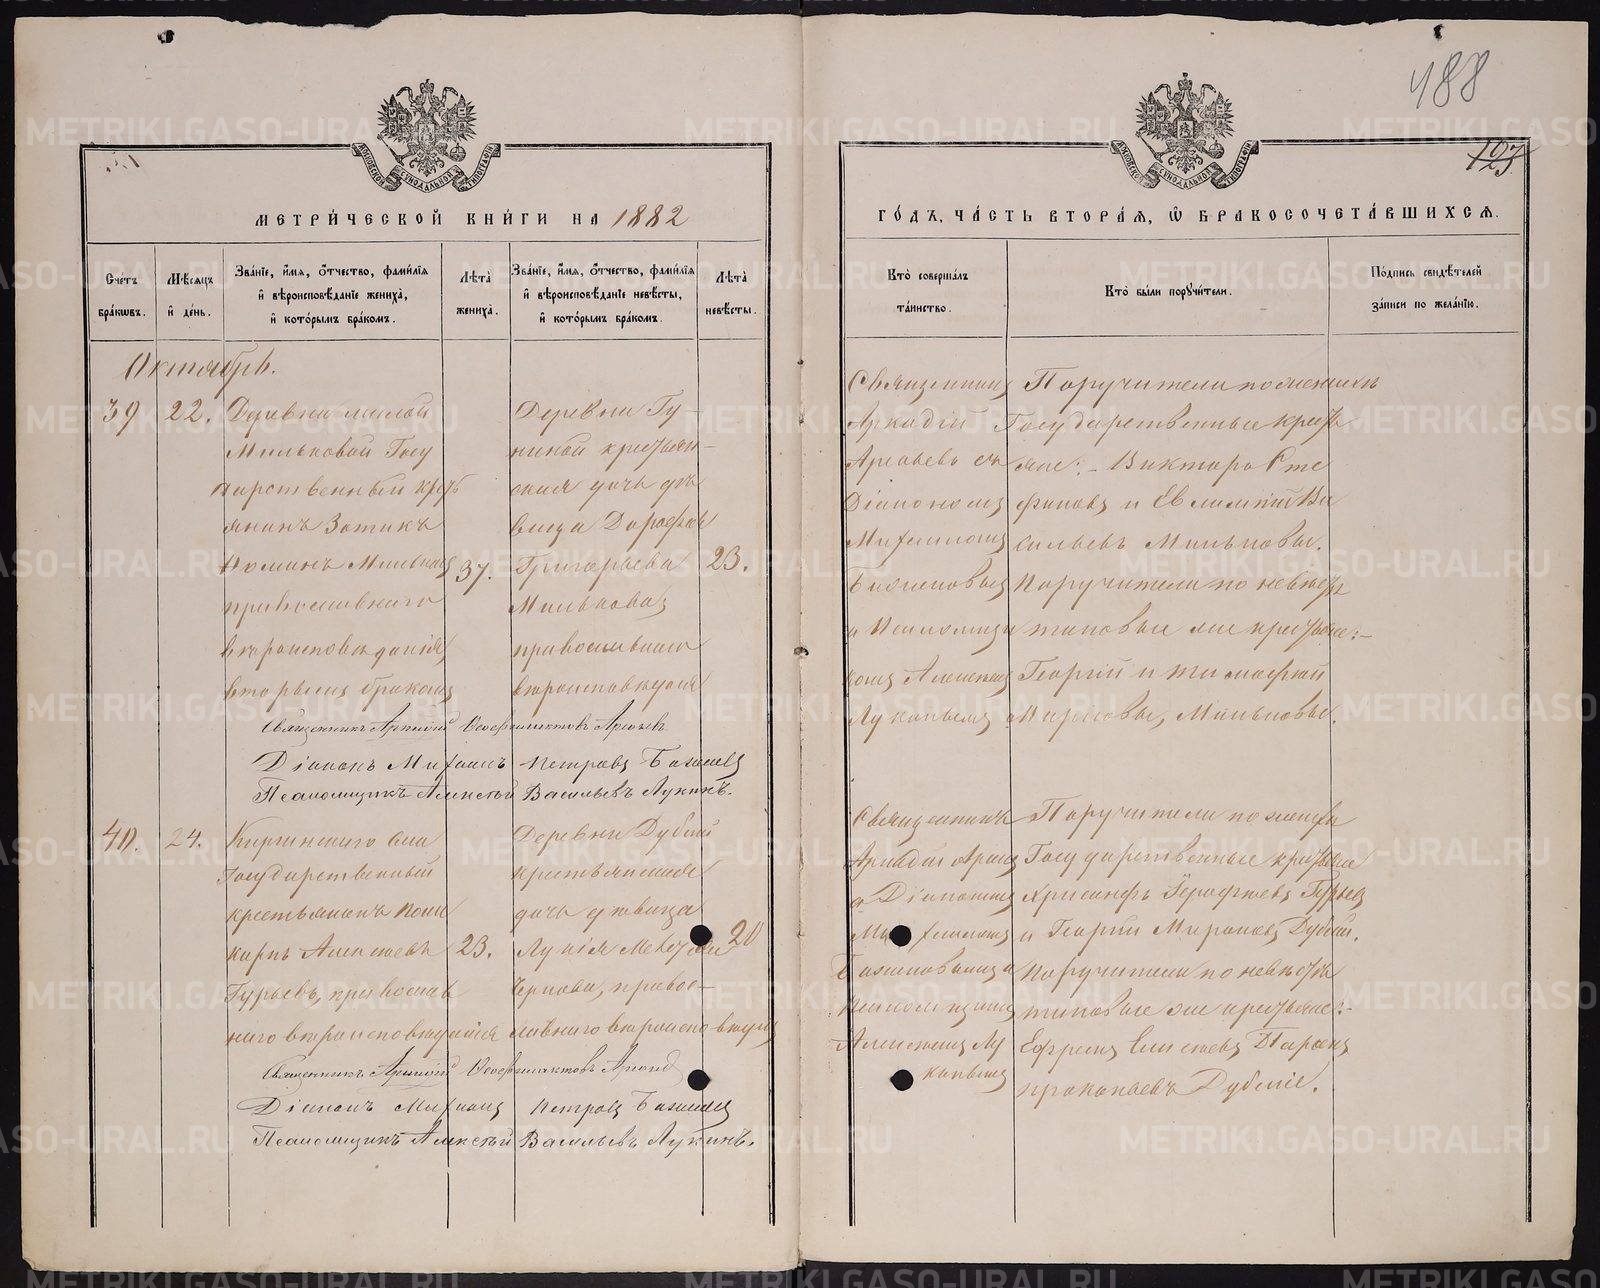 188
197
МОСКОВСКОЙ СѴНОДАЛЬНОЙ ТИПОГРАФІИ
МОСКОВСКОЙ СѴНОДАЛЬНОЙ ТИПОГРАФІИ
МЕТРИ́ЧЕСКОЙ КНИ́ГИ НА 1882
ГО́ДЪ, ЧА́СТЬ ВТОРА́Я, Ѽ БРАКОСОЧЕТА́ВШИХСЯ.
Сче́тъ бра́кѡвъ.
Мѣ́сяцъ и҆ де́нь.
Зва́нїе, и҆́мя, о҆́тчество, фами́лїя и҆ вѣроисповѣ́данїе жениха̀, и҆ кото́рымъ бра́комъ.
Лѣта̀ жениха̀.
Зва́нїе, и҆́мя, о҆́тчество, фами́лїя и҆ вѣроисповѣ́данїе невѣ́сты, и҆ кото́рымъ бра́комъ.
Лѣта̀ невѣ́сты.
Кто̀ соверша́лъ та́инство.
Кто̀ бы́ли порꙋчи́тели.
По́дпись свидѣ́телей за́писи по жела́нїю.
Октябрь.
39
22.
Деревни малой
Мильковой Госу
дарственный кресть
янинъ Зотикъ
православнаго
вѣроисповѣданія,
вторымъ бракомъ
37.
Деревни Гу-
ниной крестьян-
ская дочь дѣ
вица Дорофея
Григорьева
Милькова,
православнаго
вѣроисповѣданія
23.
Священникъ
Аркадій
Діакономъ
Михаиломъ
Бажановымъ
Лукинымъ
Поручители по женихѣ
Государственные кресть
яне: Викторъ Сте
фановъ и Евлампій Ва
сильевъ Мильковы.
Поручители по невѣстѣ
таковые же крестьяне:-
Георгій и Тимофей
Марковы, Мильковы.
Священникъ Аркадій Феофилактовъ
Діаконъ Михаилъ Петровъ Бажановъ
Псаломщикъ Алексѣй Васильевъ Лукинъ.
40.
24.
Киргинскаго села
Государственный
крестьянинъ Поли
карпъ Алексѣевъ
Гурьевъ, православ
наго вѣроисповѣданія
23.
Деревни Дубской
крестьянская
дочь дѣвица
Лукія
Чернова, правос-
лавнаго вѣроисповѣдан
20
Священникъ
Аркадій
Діакономъ
Михаиломъ
Бажановымъ и
Алексѣемъ Лу
кинымъ
Поручители по женихѣ
Государственные крестьяне
Хрисанфъ Іерофеевъ Гурьевъ
и Георгій Мироновъ Дубской.
Поручители по невѣстѣ
таковые же крестьяне:-
Ефремъ Елисѣевъ
Прокопьевъ Дубскіе.
Священникъ Аркадій Феофилактовъ
Діаконъ Михаилъ Петровъ Бажановъ
Псаломщикъ Алексѣй Васильевъ Лукинъ.
METRIKI.GASO-URAL.RU